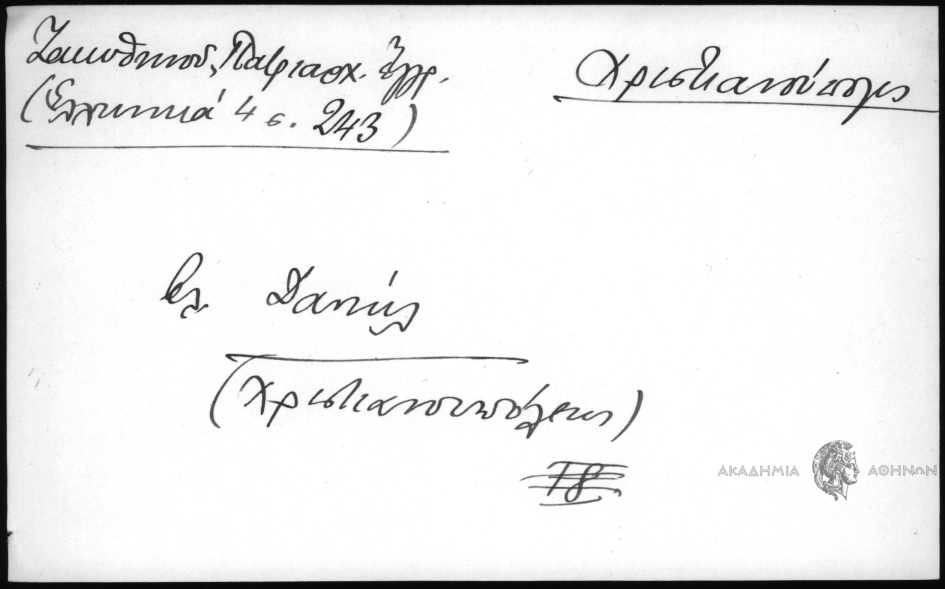 Ζακυθηνοῦ, Πατριαρχ. Ἔγγρ.
(Ἑλληνικά 4 σ. 243)
Χριστιανούπολις
βλ. Δανιήλ
(Χριστιανουπόλεως)
ΑΚΑΔΗΜΙΑ ΑΘΗΝΩΝ